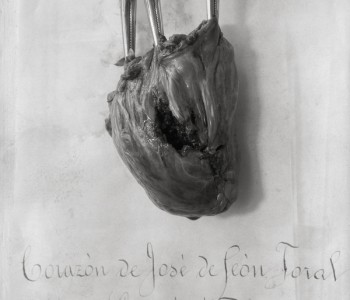 Corazón de José de León Toral